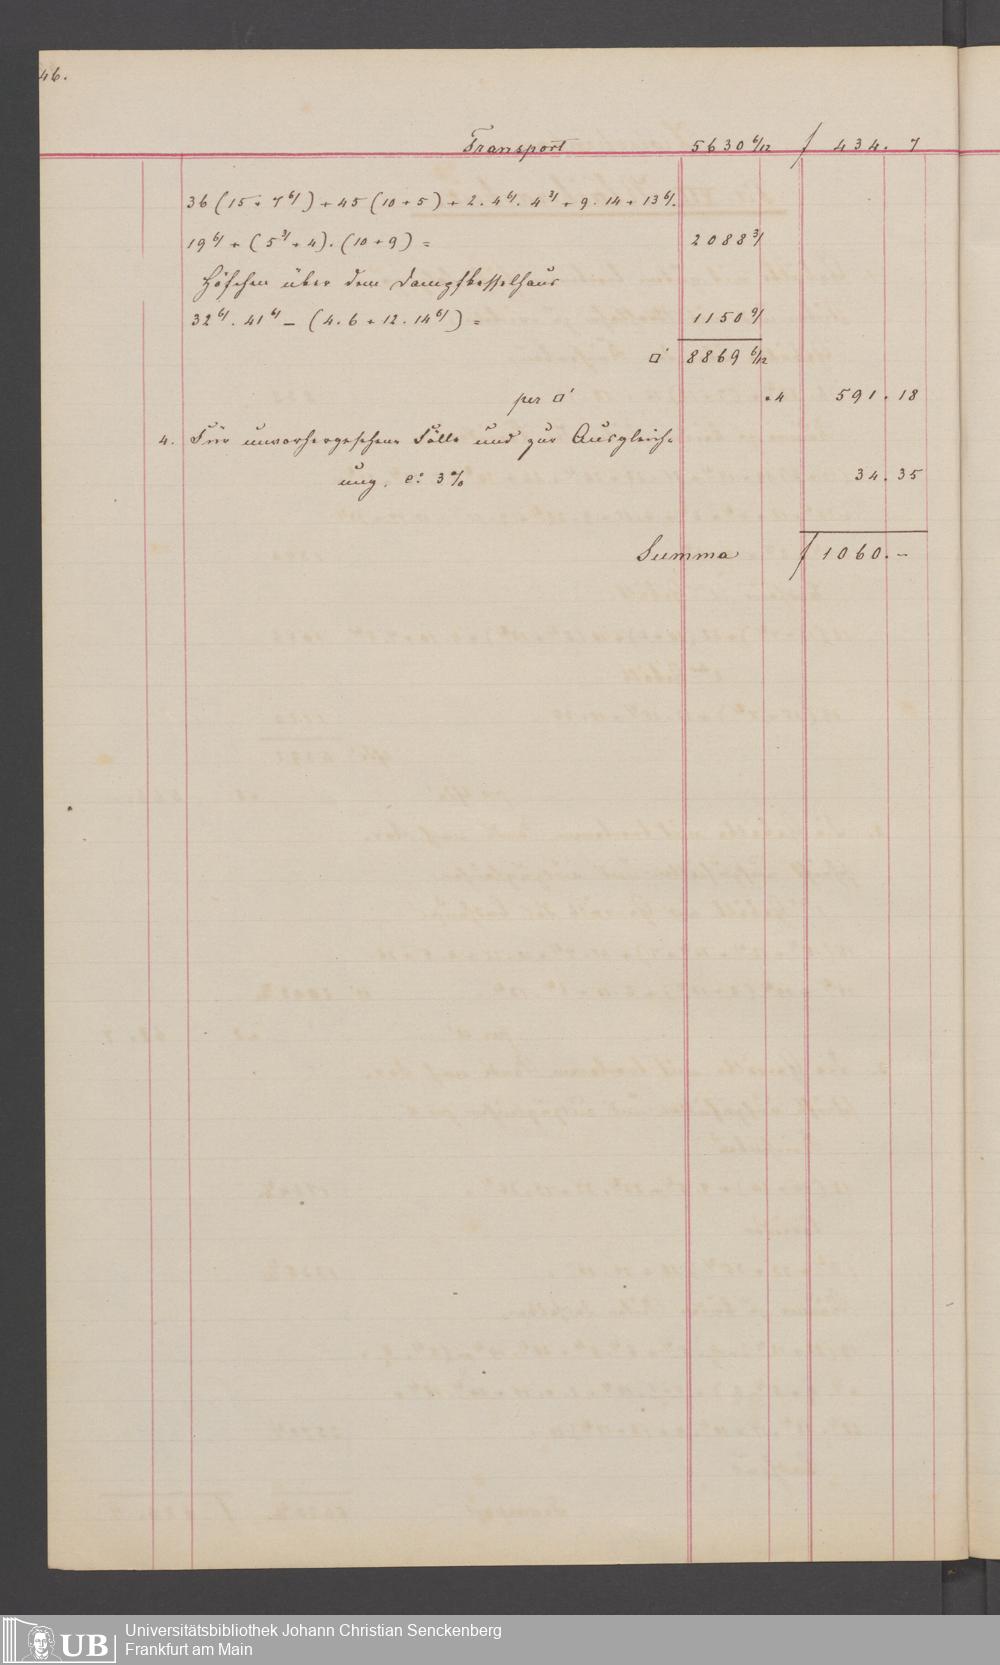 46.
Transport 5630 6/12 f 434. 7
36 (15 + 7 6/) + 45 (10 + 5) + 2. 4 6/. 4 3/ + 9. 14 + 13 6/.
19 6/ + (5 3/ + 4). (10 + 9) = 2088 3/
Höfchen über dem Dampfkesselhaus
32 6/. 41 6/ – (4. 6 + 12. 14 6/) = 1150 9/
□' 8869 6/12
per □' .4 591. 18
4. Für unvorhergesehene Fälle und zur Ausgleich-
ung, c: 3% 34. 35
Summa f 1060. –
UB Universitätsbibliothek Johann Christian Senckenberg
Frankfurt am Main